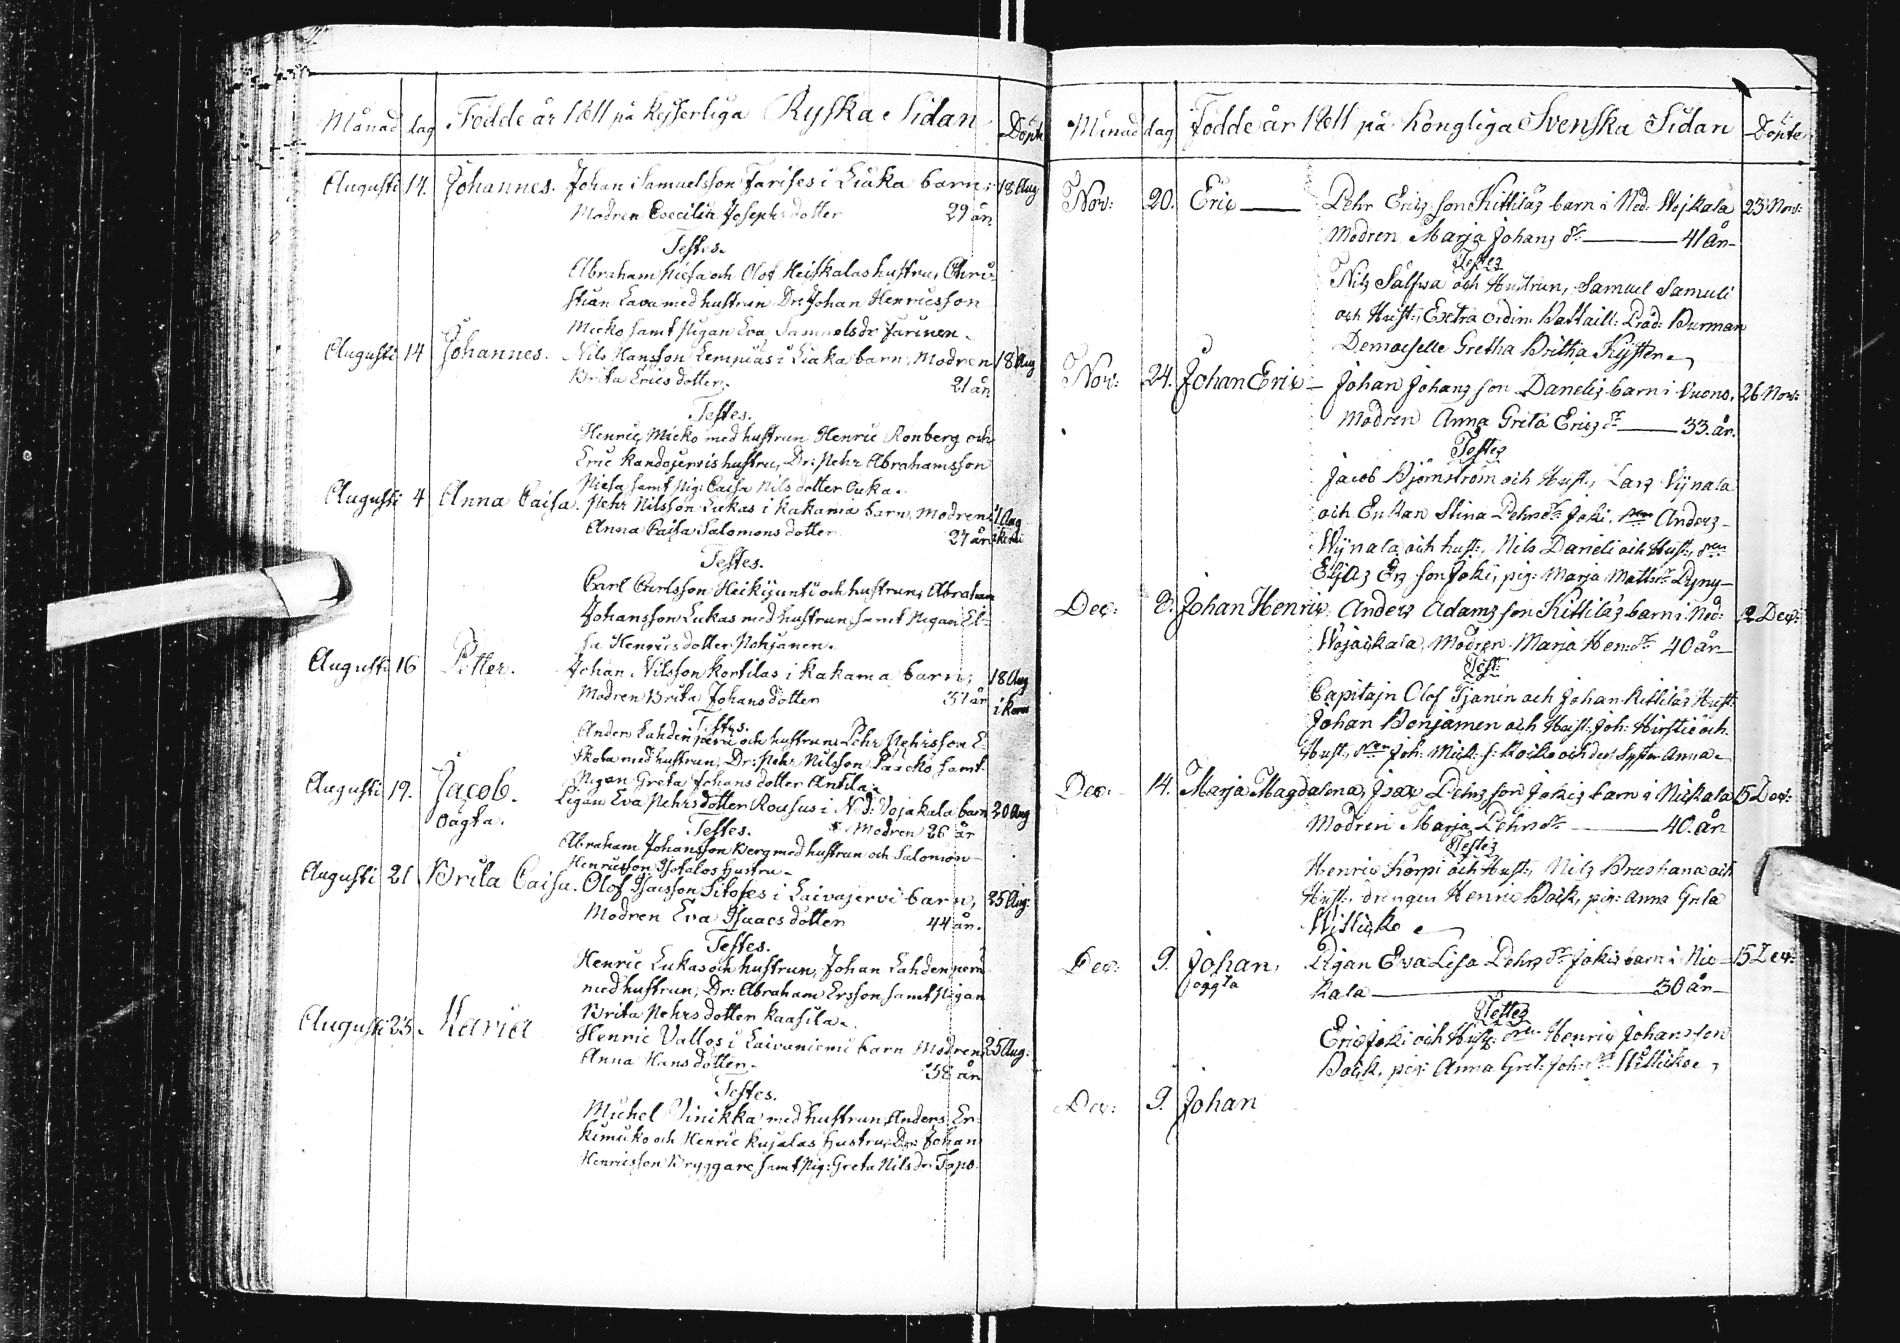 Månad dag Födde år 1811 på Kejserliga Ryska Sidan Döpte
Augusti 14. Johannes. Johan Samuelsson Farises i Liaka barn; 18 Aug
Modren Caecilia Josephsdotter 29 år
Testes.
Abraham Niefa och Olof Heiskalas hustru, Chri-
stian Lava med hustrun Dr: Johan Henricsson
Micko samt Pigan Eva Samuelsdr Farinen.
Augusti 14 Johannes. Nils Hansson Lempiäs i Liaka barn, Modren 18 Aug
Brita Ericsdotter. 21 år
Testes.
Henric Micko med hustrun Henric Rönberg och
Eric Kandojervis hustru, Dr: Pehr Abrahamsson
Niefa samt Pig: Caisa Nilsdotter Luka.
Augusti 4 Anna Caisa. Pehr Nilsson Lukas i Kakama barn, Modren Aug
Anna Caisa Salomonsdotter 27 år
Testes.
Carl Carlsson Heikijunti och hustrun, Abraham
Johansson Lukas med hustrun samt Pigan El-
sa Henricsdotter Pohjanen.
Augusti 16 Petter. Johan Nilsson Kortilas i Kakama barn; 18 Aug
Modren Brita Johansdotter 37 år
Testes.
Anders Lahdenperä och hustrun, Pehr Pehrsson E-
skola med hustrun, Dr: Pehr Nilsson Paacko, samt
Pigan Greta Johansdotter Antila.
Augusti 19. Jacob. Pigan Eva Pehrsdotter Rousus i N.d: Vojakala barn 20 Aug
oägta. Testes. Modren 26 år
Abraham Johansson Berg med hustrun och Salomon
Henricsson Isotalos hustru.
Augusti 21 Brita Caisa. Olof Isacsson Sitofes i Laivajervi barn, 25 Aug:
Modren Eva Isaacsdotter 44 år.
Testes.
Henric Lukas och hustrun, Johan Lahdenperä
med hustrun, Dr: Abraham Ersson samt Pigan
Brita Pehrsdotter Kaasila.
Augusti 23. Maria Henric Vallos i Laivaniemi barn Modren 25 Aug.
Anna Hansdotter. 38 år
Testes.
Michel Vinikka med hustrun, Anders Er-
kimuko och Henric Kujalas hustrur, Dr: Johan
Henricsson Bryggare samt Pig: Greta Nils dr: Topo.
Månad dag Födde år 1811 på Kongliga Svenska Sidan Döpte
Nov: 20. Eric Pehr Erics son Kittiläs barn i Ned: Wojkala 23 Nov:
Modren Marja Johans dr 41 år
Testes
Nils Salpoa och Hustrun, Samuel Samuli
och Hust:, Extra ordin: Battaill: Pred: Burman
Demoiselle Gretha Britha Kijsten
Nov: 24. Johan Eric Johan Johans son Danelis barn i Vuono. 26 Nov:
Modren Anna Greta Erics dr 33. år.
Testes
Jacob Björnström och Hust:, Lars Vijnala
och Enkan Stina Pehrs dr Joki, Anders
Wijnala och hust:, Nils Daneli och Hust:,
Eljas Ers son Joki, pig: Marja Maths dr Pyny
Dec: 2. Johan Henric Anders Adams son Kittiläs barn i Ned: 2 Dec:
Wojackala, Modren Marja Hen: dr 40 år
Test:
Capitajn Olof Tjanin och Johan Kittiläs Hust
Johan Benjamen och Hust: Joh: Hirstiö och
Hust:, Joh: Mick: s: Koiko och des Syster Anna
Dec: 14. Marja Magdalena, Isac Pehrs son Jokis barn i Nickala 15 Dec:
Modren Marja Pehrs dr 40. år
Testes
Henric Korpi och Hust:, Nils Brushane och
Hust:, drengen Henric Bäck, pig: Anna Greta
Witticko
Dec: 9. Johan, Pigan Eva Lisa Pehrs dr Jokis barn i Nic- 15 Dec:
oägta kala 30 år
Testes
Eric Joki och Hust: Henric Johansson
Bäck, pig: Anna Gret: Joh: dr Wittickoe
Dec: 9. Johan